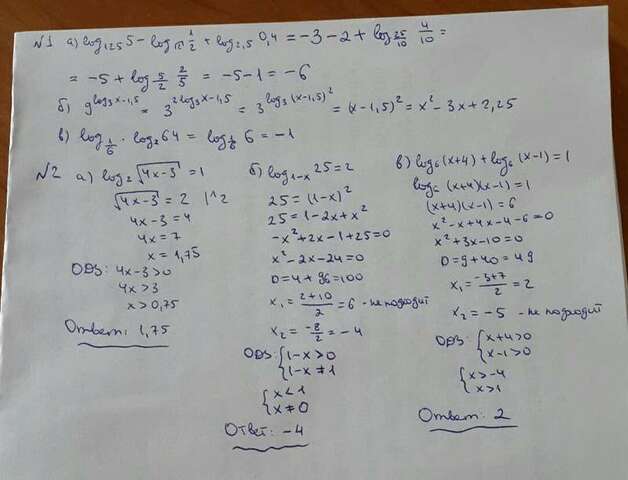 N1 а) log₁₂₅ 5 - log 1/2 + log₂,₅ 0,4 = -3 - 2 + log_{25/10} 4/10 =
= -5 + log_{5/2} 2/5 = -5 - 1 = -6
б) 9^{log₃ x-1,5} = 3^{2log₃ x-1,5} = 3^{log₃ (x-1,5)²} = (x-1,5)² = x² - 3x + 2,25
в) log_{1/6} · log₂ 64 = log_{1/6} 6 = -1
N2 а) log₂ √(4x-3) = 1
√(4x-3) = 2 |^2
4x-3 = 4
4x = 7
x = 1,75
ОДЗ: 4x-3>0
4x>3
x>0,75
Ответ: 1,75
б) log_{1-x} 25 = 2
25 = (1-x)²
25 = 1-2x+x²
-x²+2x-1+25=0
x²-2x-24=0
D=4+96=100
x₁ = (2+10)/2 = 6 - не подходит
x₂ = -8/2 = -4
ОДЗ: {1-x>0
{1-x≠1
{x<1
{x≠0
Ответ: -4
в) log₆(x+4)+log₆(x-1)=1
log₆(x+4)(x-1)=1
(x+4)(x-1)=6
x²-x+4x-4-6=0
x²+3x-10=0
D=9+40=49
x₁ = (-3+7)/2 = 2
x₂ = -5 - не подходит
ОДЗ: {x+4>0
{x-1>0
{x>-4
{x>1
Ответ: 2